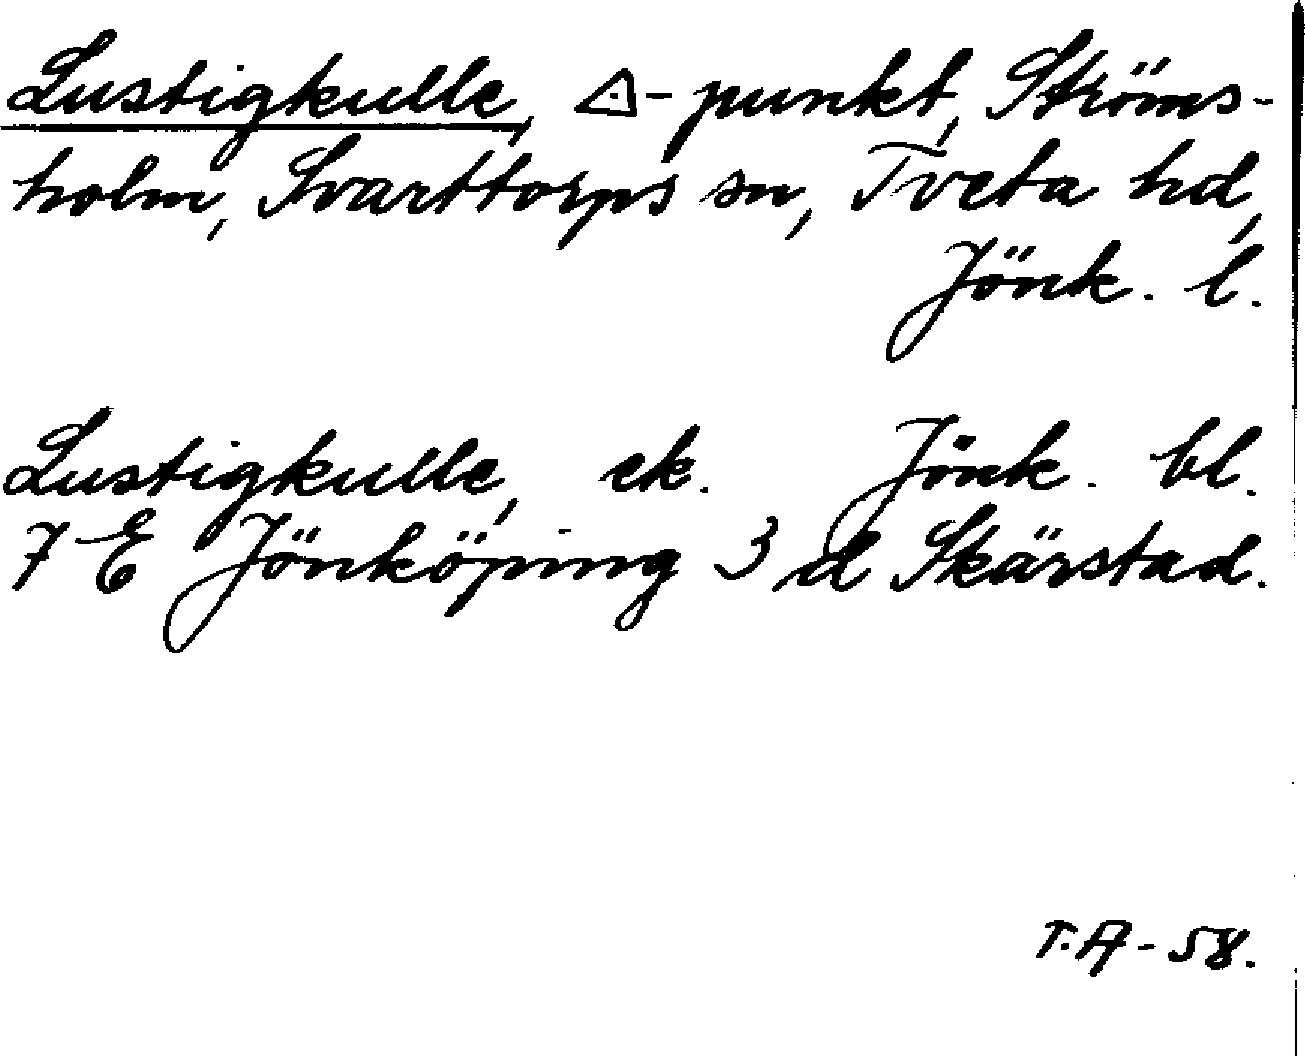 Lustigkulle, △-punkt, Ströms-
holm, Svarttorps sn, Tveta hd,
Jönk. l.
Lustigkulle, ek. Jönk. bl.
7 E Jönköping 3 d Skärstad.
T.A-58.